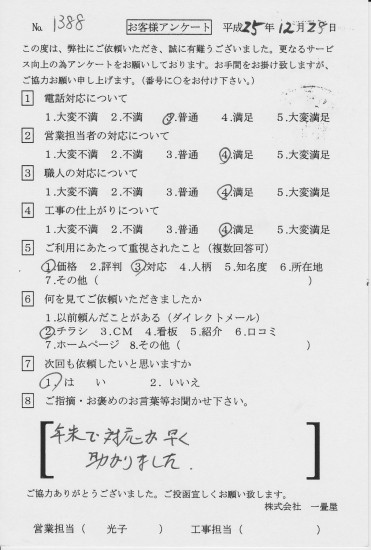 No. 1388 お客様アンケート 平成25年12月29日
この度は、弊社にご依頼いただき、誠に有難うございました。更なるサービ
ス向上の為アンケートをお願いしております。お手間をお掛け致しますが、
ご協力お願い申し上げます。（番号に○をお付け下さい。）
1 電話対応について
1.大変不満 2.不満 3.普通 4.満足 5.大変満足
2 営業担当者の対応について
1.大変不満 2.不満 3.普通 4.満足 5.大変満足
3 職人の対応について
1.大変不満 2.不満 3.普通 4.満足 5.大変満足
4 工事の仕上がりについて
1.大変不満 2.不満 3.普通 4.満足 5.大変満足
5 ご利用にあたって重視されたこと（複数回答可）
1.価格 2.評判 3.対応 4.人柄 5.知名度 6.所在地
7.その他（ ）
6 何を見てご依頼いただきましたか
1.以前頼んだことがある（ダイレクトメール）
2.チラシ 3.CM 4.看板 5.紹介 6.口コミ
7.ホームページ 8.その他（ ）
7 次回も依頼したいと思いますか
1.は い 2. いいえ
8 ご指摘・お褒めのお言葉等お聞かせ下さい。
年末で対応が早く
助かりました.
ご協力ありがとうございました。ご投函宜しくお願い致します。
株式会社 一畳屋
営業担当（ 光子 ） 工事担当（ ）